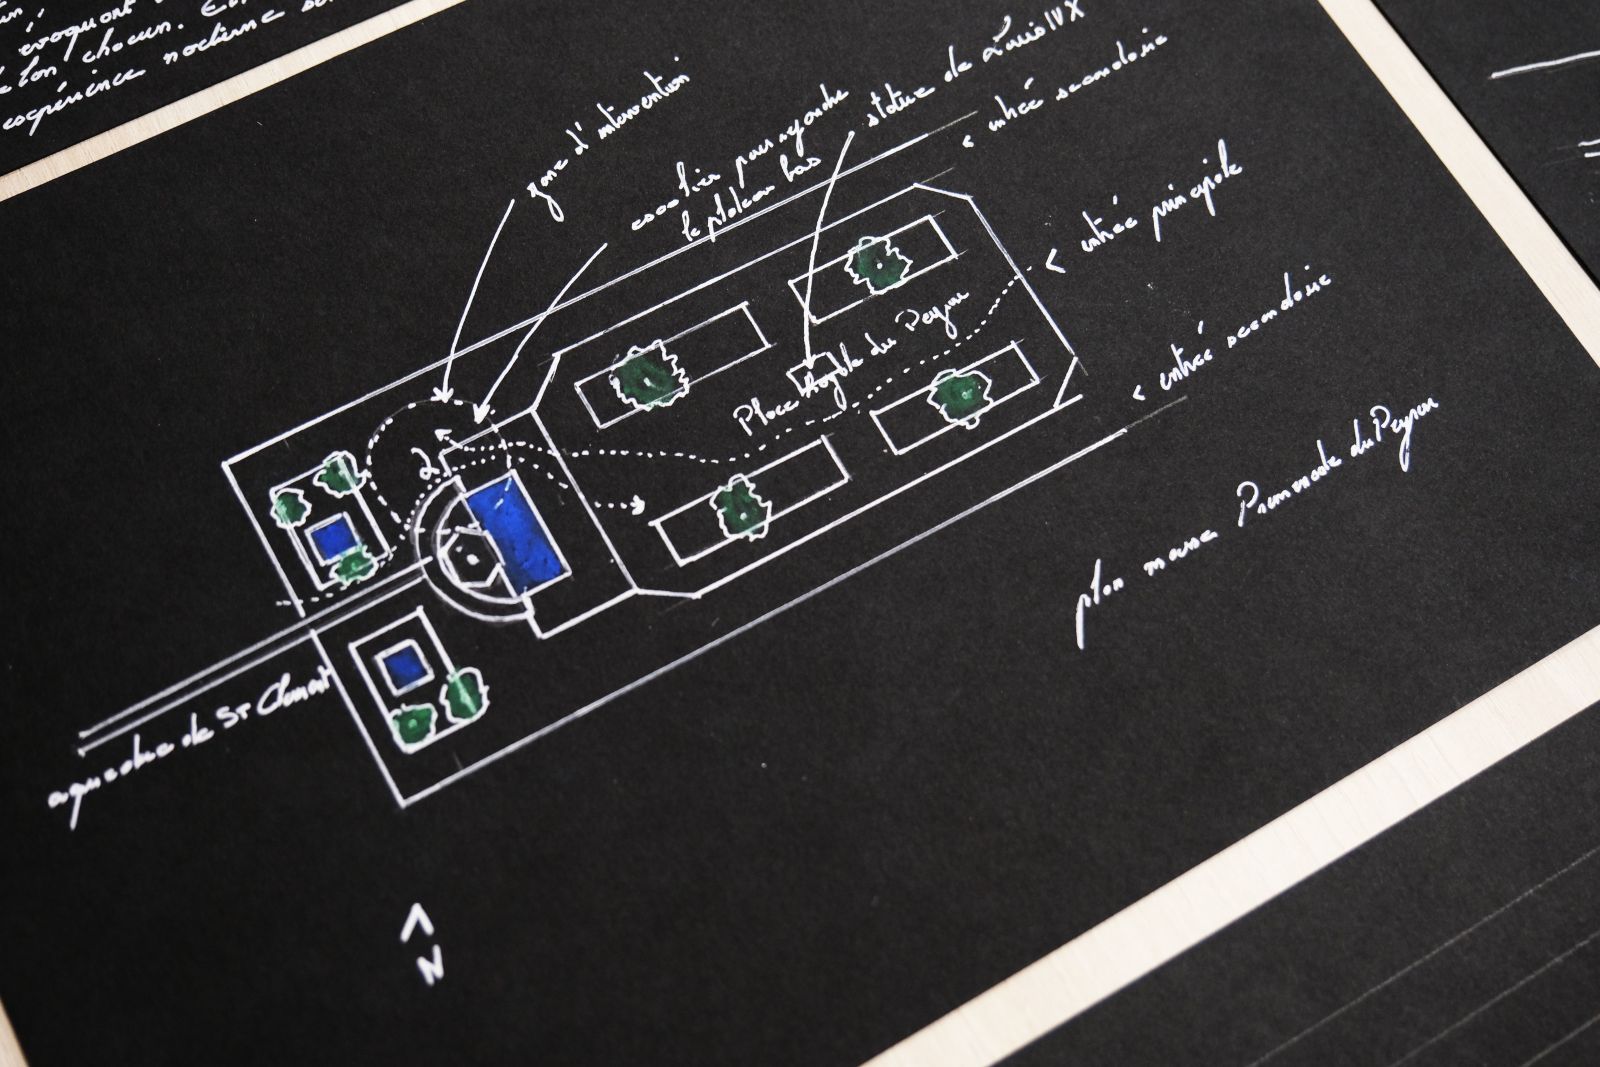 évoquant
chacun.
expérience nocturne
zone d'intervention
escalier pour rejoindre
le plateau bas
statue de Louis IVX
< entrée secondaire
< entrée principale
< entrée secondaire
Place Royale du Peyrou
2
plan masse Promenade du Peyrou
aqueduc de ST Clément
N